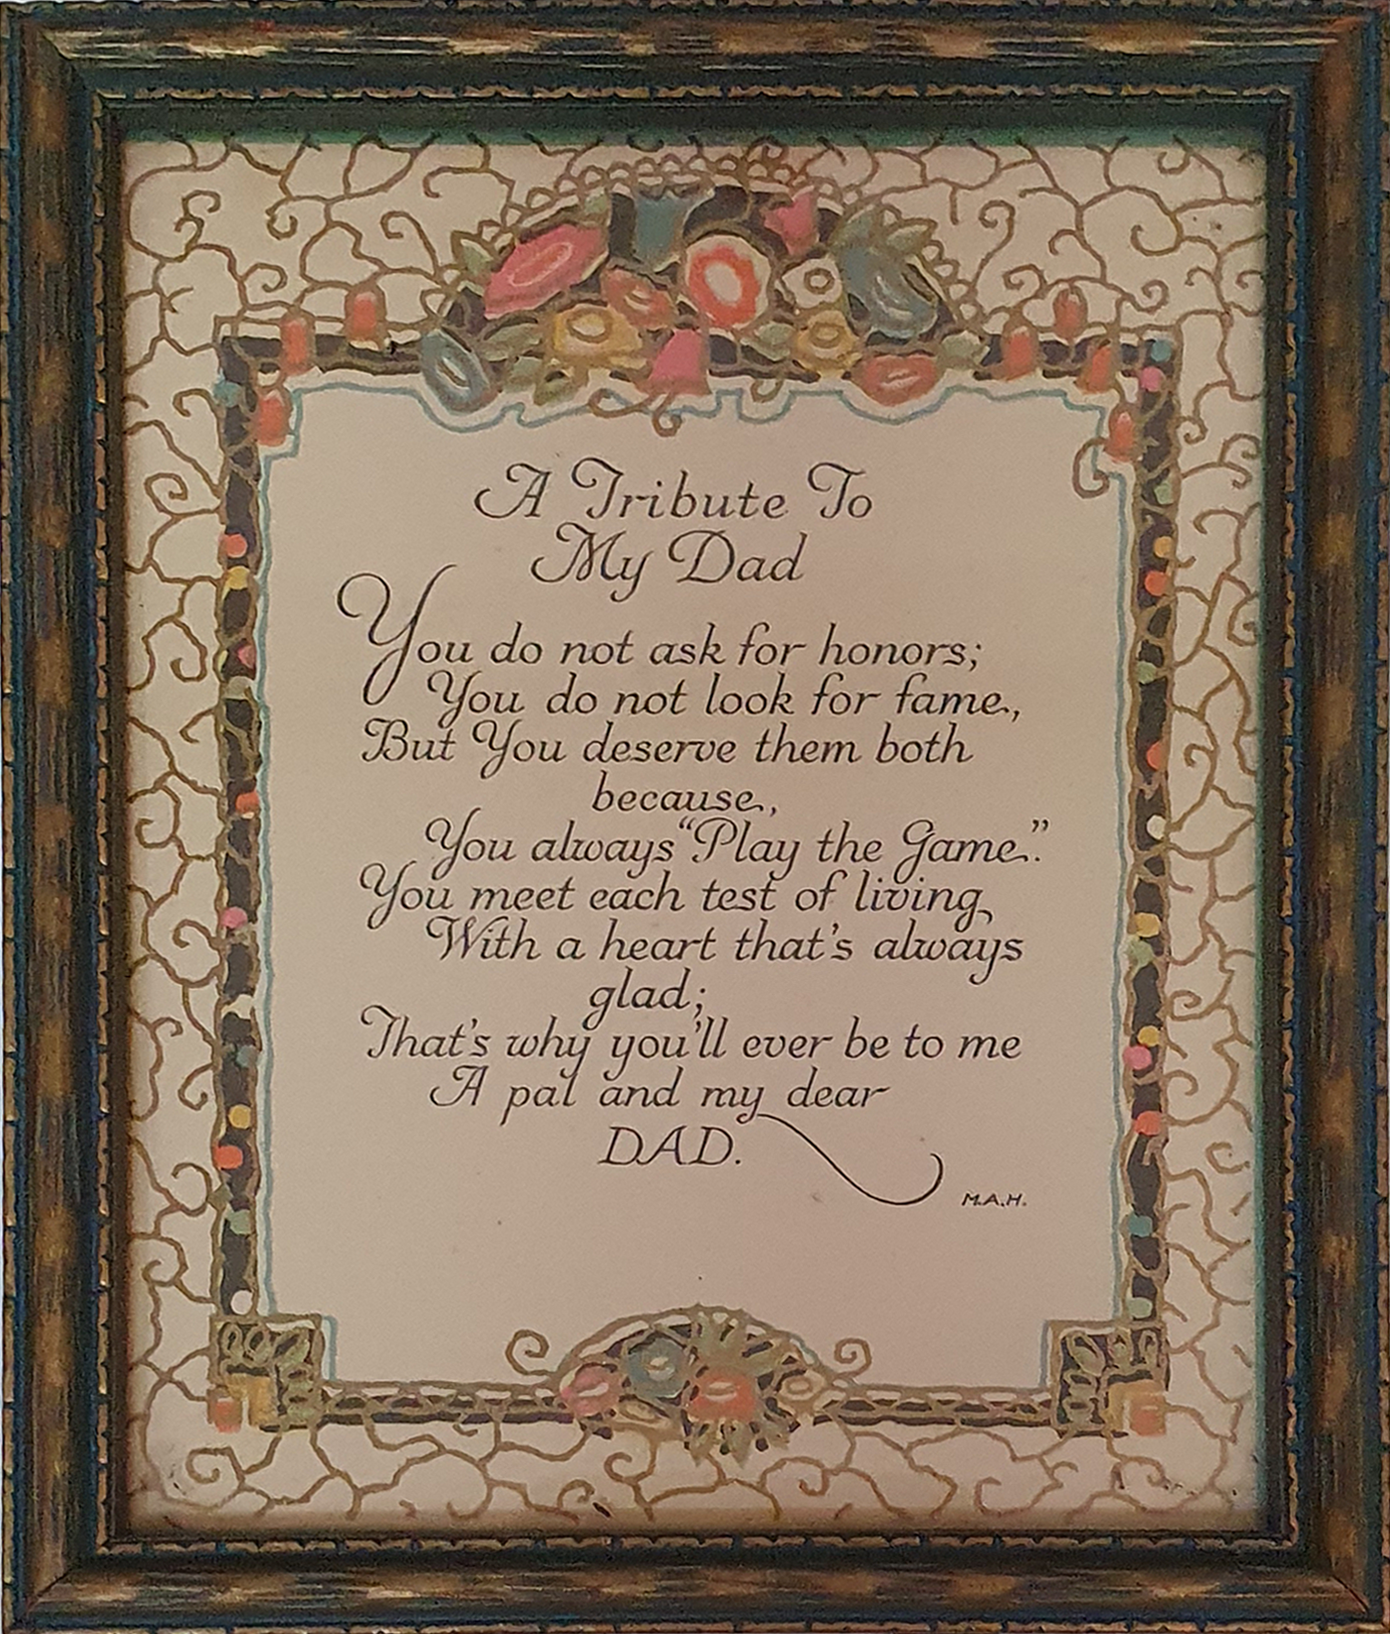 A Tribute To
My Dad
You do not ask for honors;
You do not look for fame,
But You deserve them both
because,
You always "Play the Game."
You meet each test of living,
With a heart that's always
glad;
That's why you'll ever be to me
A pal and my dear
DAD.
M.A.H.